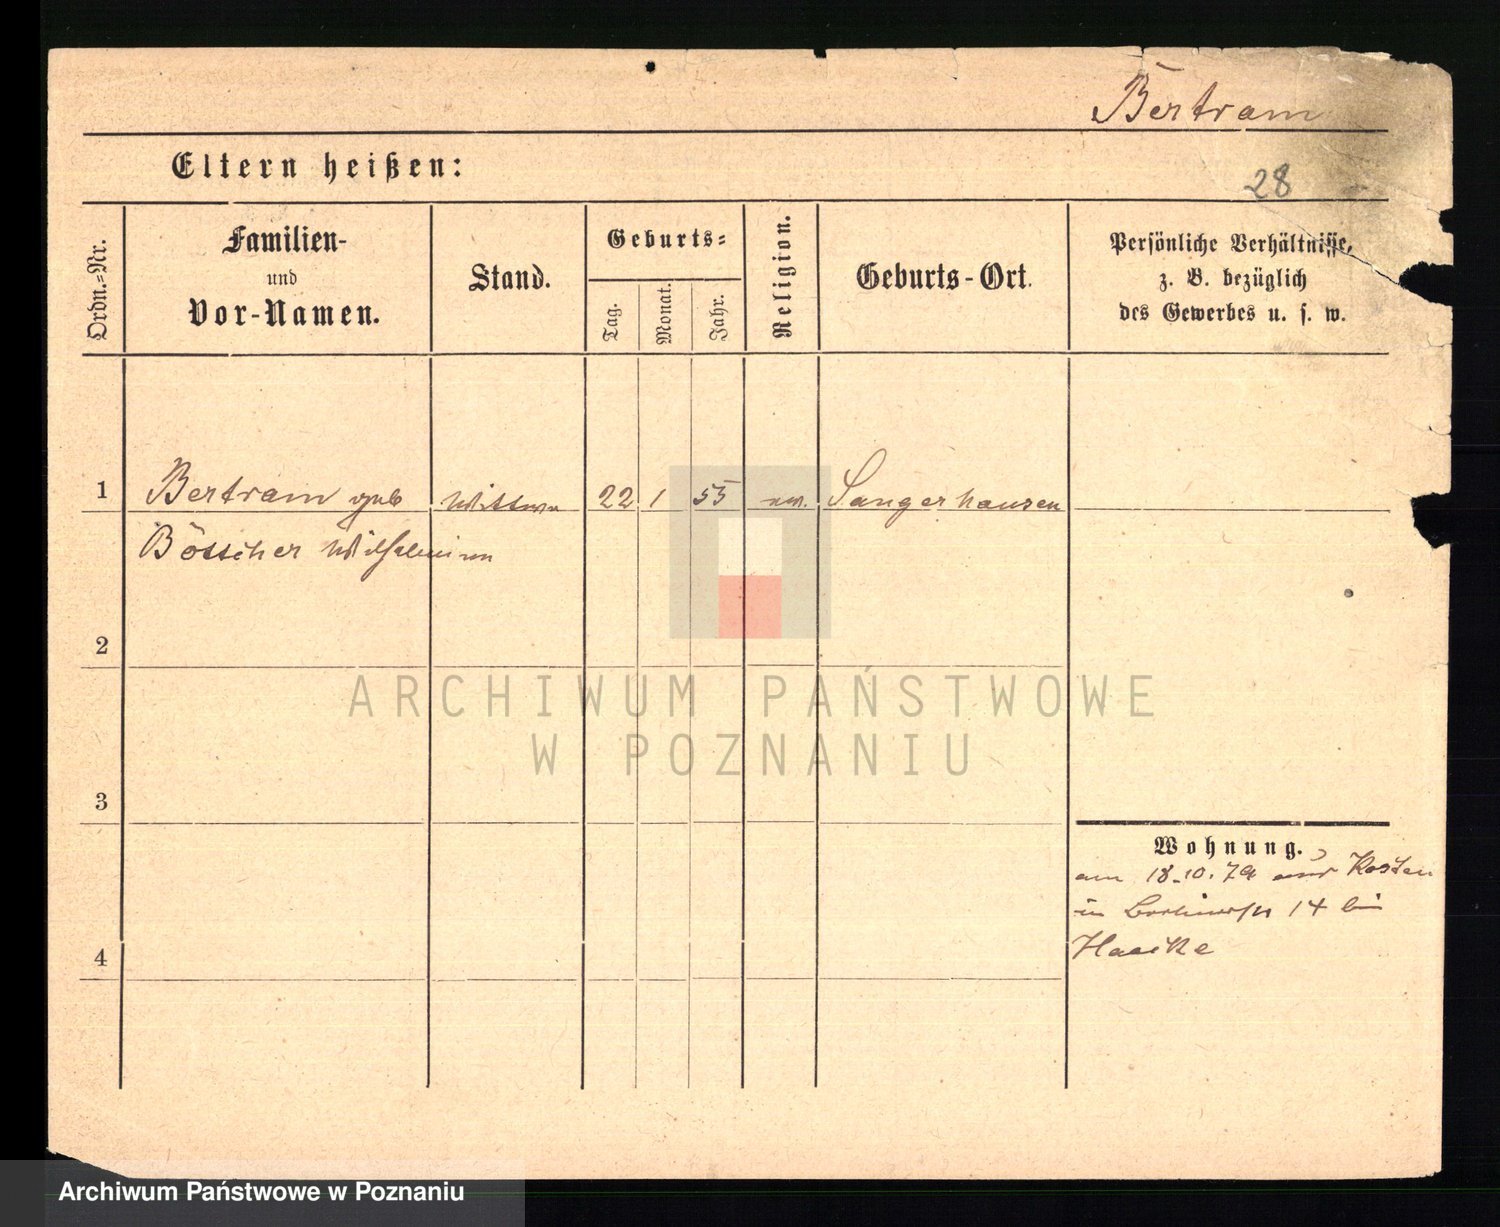 Bertram
Eltern heißen:
28
Ordn.=Nr.
Familien-
und
Vor-Namen.
Stand.
Geburts=
Tag.
Monat.
Jahr.
Religion.
Geburts-Ort.
Persönliche Verhältnisse,
z. B. bezüglich
des Gewerbes u. s. w.
1 Bertram geb Wittwe 22 1 55 ev. Sangerhausen
Böttcher Wilhelmine
2
3
4
Wohnung.
am 18.10.79 aus Kosten
in Berlinerstr 14 bei
Haacke
ARCHIWUM PAŃSTWOWE
W POZNANIU
Archiwum Państwowe w Poznaniu